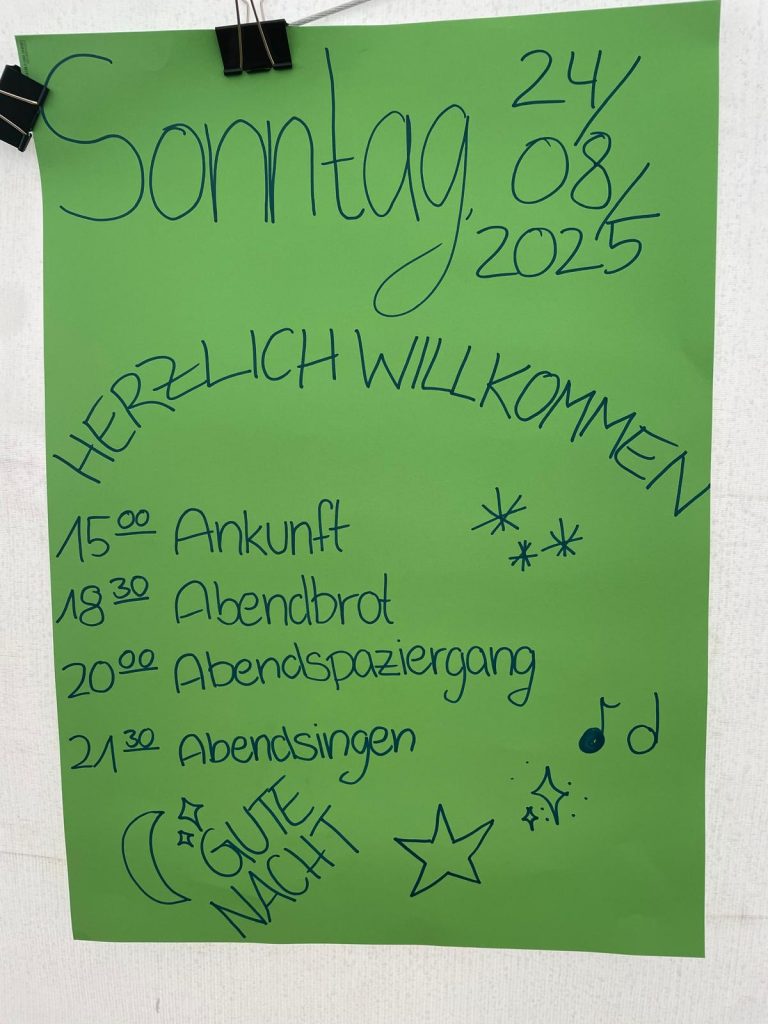 Sonntag, 24/
08/
2025
HERZLICH WILLKOMMEN
15⁰⁰ Ankunft
18³⁰ Abendbrot
20⁰⁰ Abendspaziergang
21³⁰ Abendsingen
GUTE
NACHT